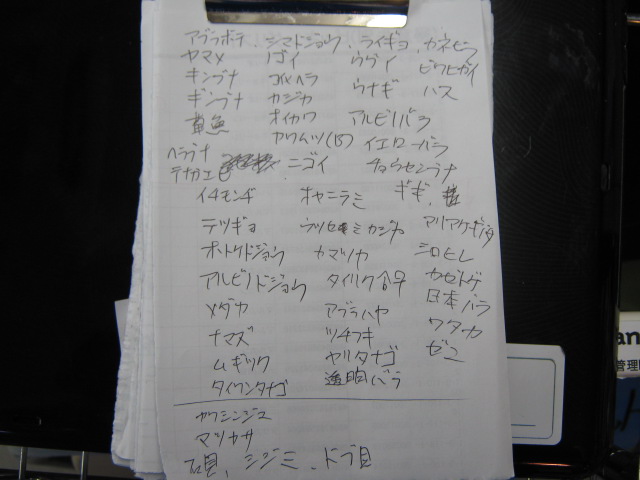 アブラボテ、シマドジョウ、ライギョ、カネヒラ
ヤマメ ノゴイ ウグイ ビワヒガイ
キンブナ ヨドヘラ ウナギ ハス
ギンブナ カジカ アルビノバラ
黄魚 オイカワ
カワムツ(B) イエローバラ
ヘラブナ ニゴイ チョウセンブナ
テナガエビ
イチモンヂ オヤニラミ ギギ、
テツギョ ウツセミカジカ アリアケギバチ
ホトケドジョウ カマツカ シロヒレ
アルビノドジョウ タイリク カゼトゲ
メダカ アブラハヤ 日本バラ
ナマズ ツチフキ ワタカ
ムギツク ヤリタナゴ ゼニ
タイワンタナゴ 透明バラ
カワシンジュ
マツカサ
石貝、シジミ、ドブ貝
an
管理